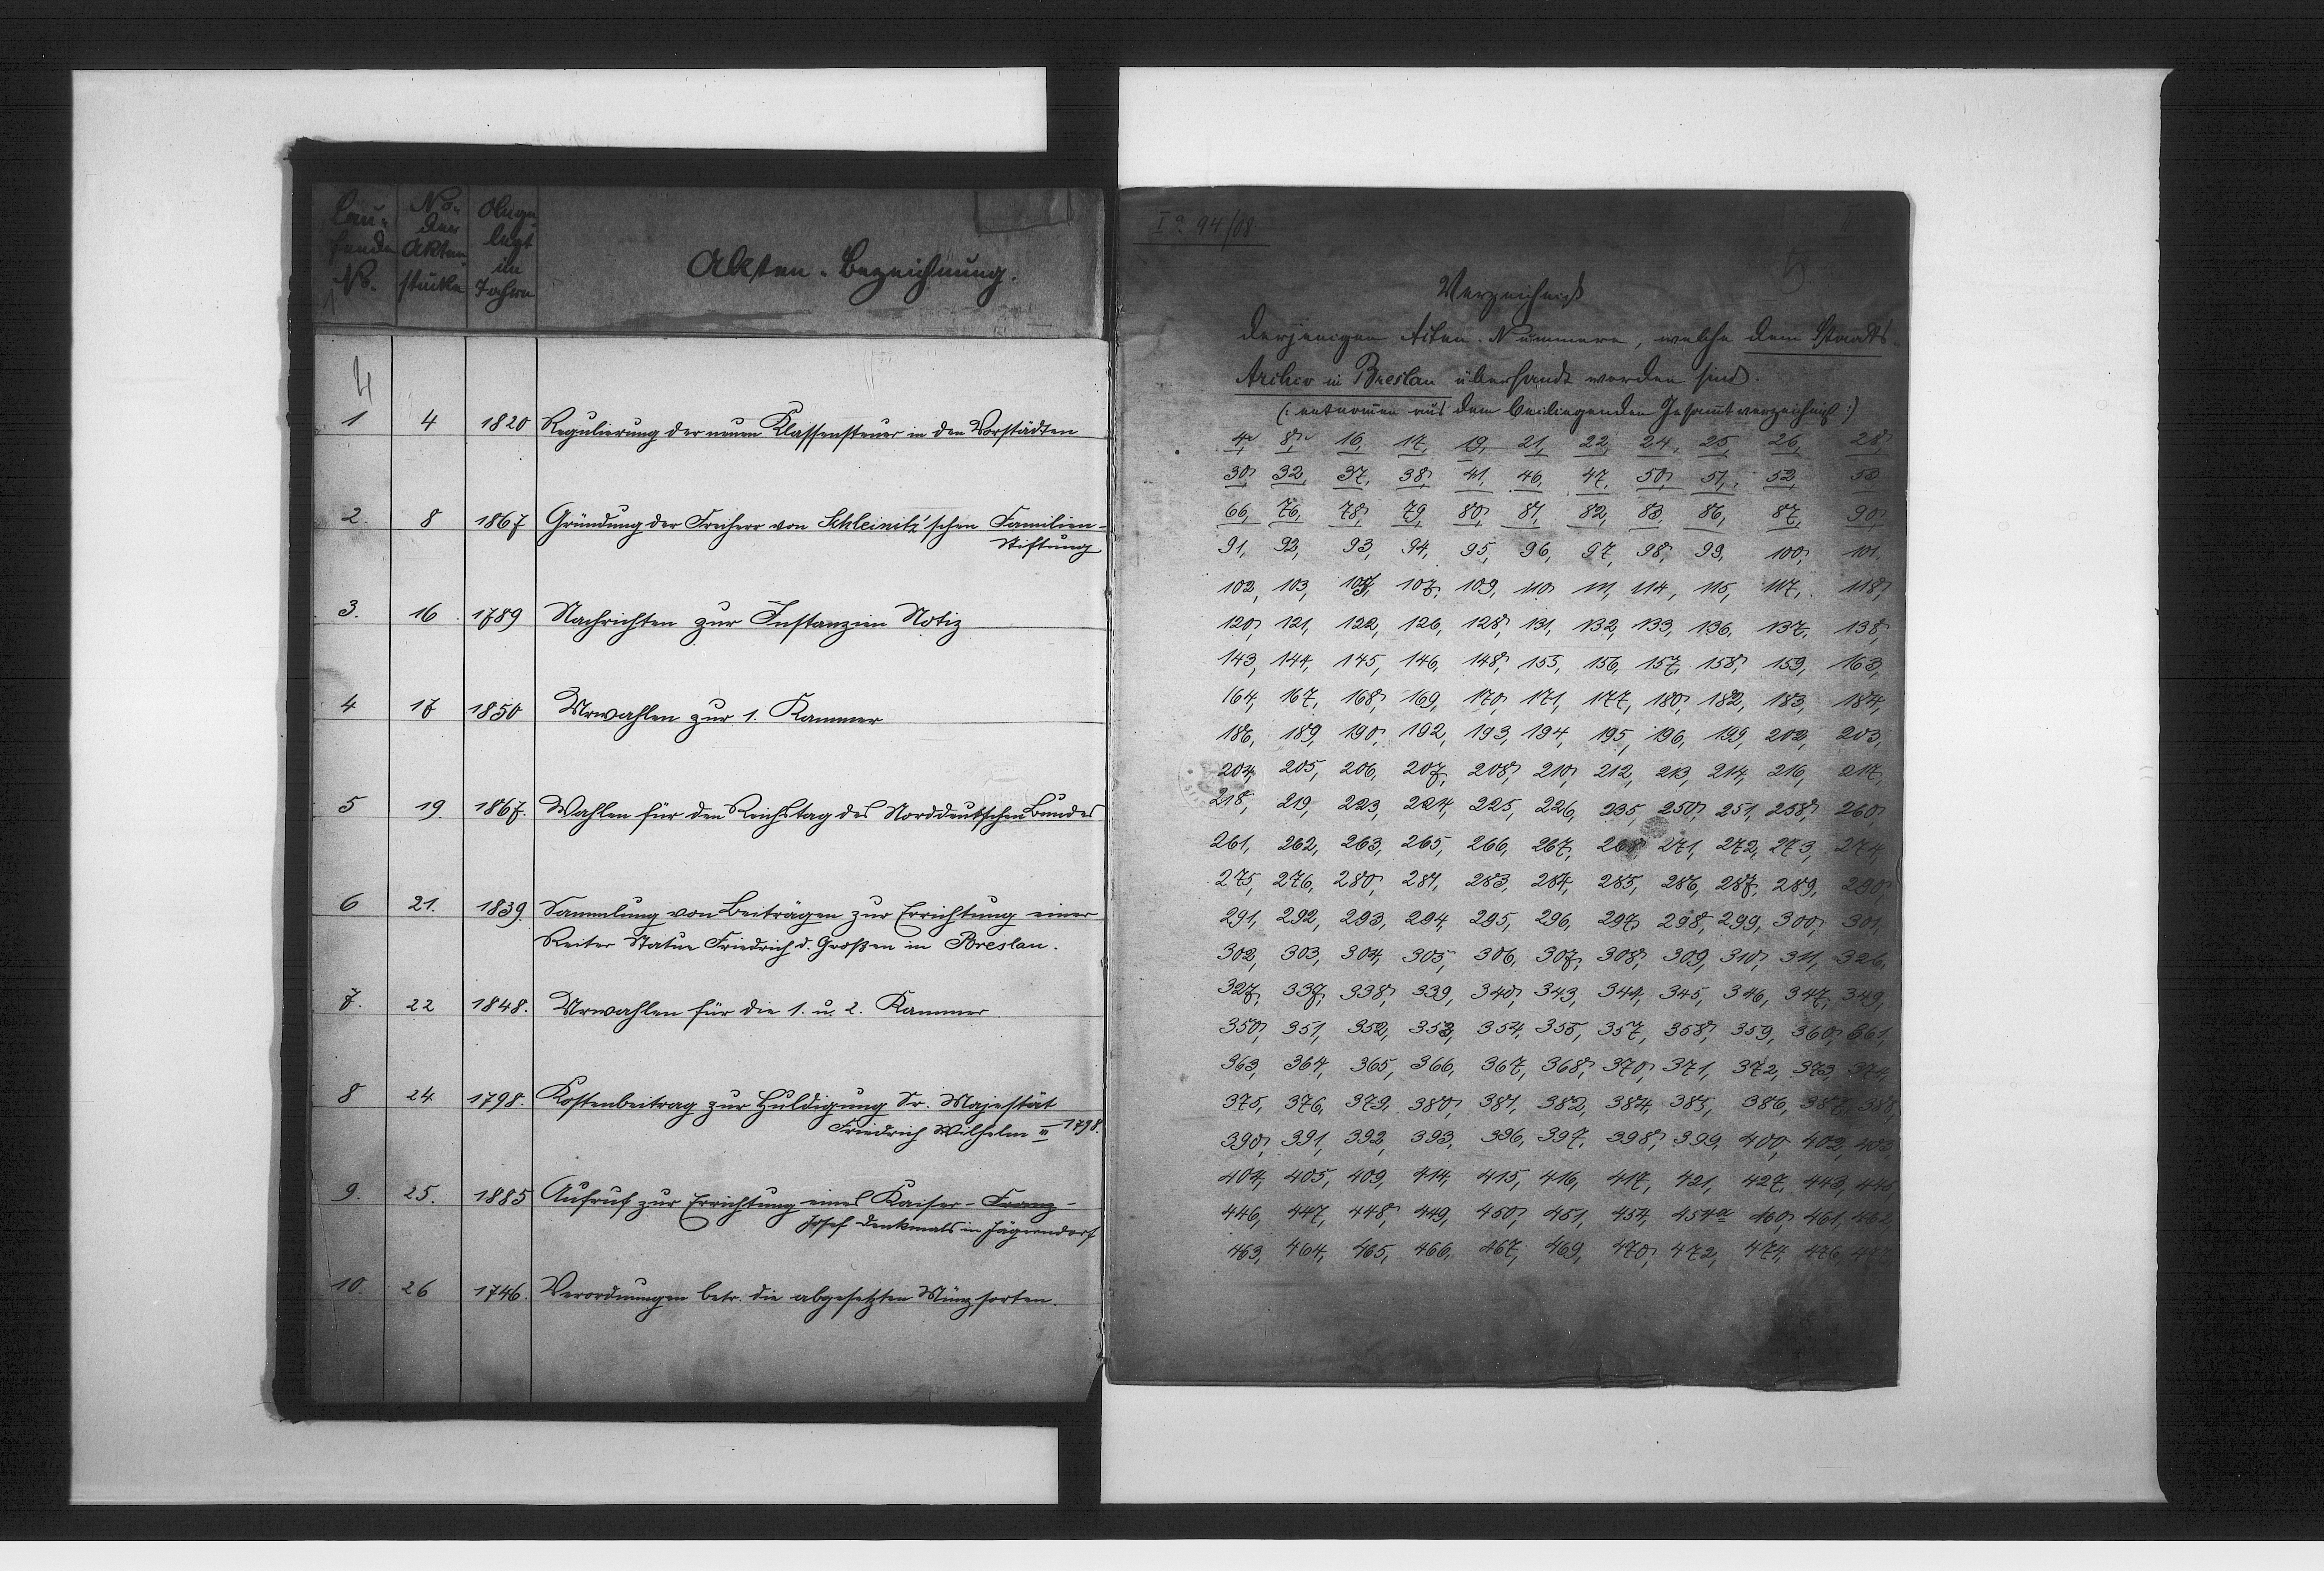 Lau-
fende
No.
No.
der
Akten
stücke
Ange-
legt
im
Jahre
Akten-Bezeichnung.
4
1 4 1820 Regulierung der neuen Klassensteuer in den Vorstädten
2. 8 1867 Gründung der Freiherr von Schleinitz'schen Familien-
Stiftung
3. 16 1789 Nachrichten zur Instanzien Notiz
4 17 1850 Urwahlen zur 1. Kammer
5 19 1867. Wahlen für den Reichstag des Norddeutschen Bundes
6 21. 1839. Sammlung von Beiträgen zur Errichtung einer
Reiter Statue Friedrich d. Großen in Breslau.
7. 22 1848. Urwahlen für die 1. u. 2. Kammer
8 24 1798. Kostenbeitrag zur Huldigung Sr. Majestät
Friedrich Wilhelm III 1798.
9. 25. 1885 Aufruf zur Errichtung eines Kaiser-Franz-
Josef Denkmals in Jägerndorf
10. 26 1746. Verordnungen betr. die abgesetzten Münzsorten.
Ia 94/08
5
Verzeichniß
derjenigen Akten-Nummern, welche dem Staats-
Archiv in Breslau übersandt worden sind.
(: entnommen aus dem beiliegenden Gesammtverzeichniß :)
4, 8, 16, 17, 19, 21, 22, 24, 25, 26, 28,
30, 32, 37, 38, 41, 46, 47, 50, 51, 52,
66, 76, 78, 79, 80, 81, 82, 83, 86, 87, 90,
91, 92, 93, 94, 95, 96, 97, 98, 99, 100, 101,
102, 103, 107, 109, 110, 111, 114, 115, 117, 118,
120, 121, 122, 126, 128, 131, 132, 133, 136, 137, 138,
143, 144, 145, 146, 148, 155, 156, 157, 158, 159, 163,
164, 167, 168, 169, 170, 171, 177, 180, 182, 183, 184,
186, 189, 190, 192, 193, 194, 195, 196, 199, 202, 203,
204, 205, 206, 207, 208, 210, 212, 213, 214, 216, 217,
218, 219, 223, 224, 225, 226, 235, 250, 251, 258, 260,
261, 262, 263, 265, 266, 267, 268, 271, 272, 273, 274,
275, 276, 280, 281, 283, 284, 285, 286, 287, 289, 290,
291, 292, 293, 294, 295, 296, 297, 298, 299, 300, 301,
302, 303, 304, 305, 306, 307, 308, 309, 310, 311, 326,
327, 337, 338, 339, 340, 343, 344, 345, 346, 347, 349,
350, 351, 352, 353, 354, 355, 357, 358, 359, 360, 361,
363, 364, 365, 366, 367, 368, 370, 371, 372, 373, 374,
375, 376, 379, 380, 381, 382, 384, 385, 386, 387, 388,
390, 391, 392, 393, 396, 397, 398, 399, 400, 402, 403,
404, 405, 409, 414, 415, 416, 417, 421, 427, 443, 445,
446, 447, 448, 449, 450, 451, 454, 454a 460, 461, 462,
463, 464, 465, 466, 467, 469, 470, 472, 474, 476,